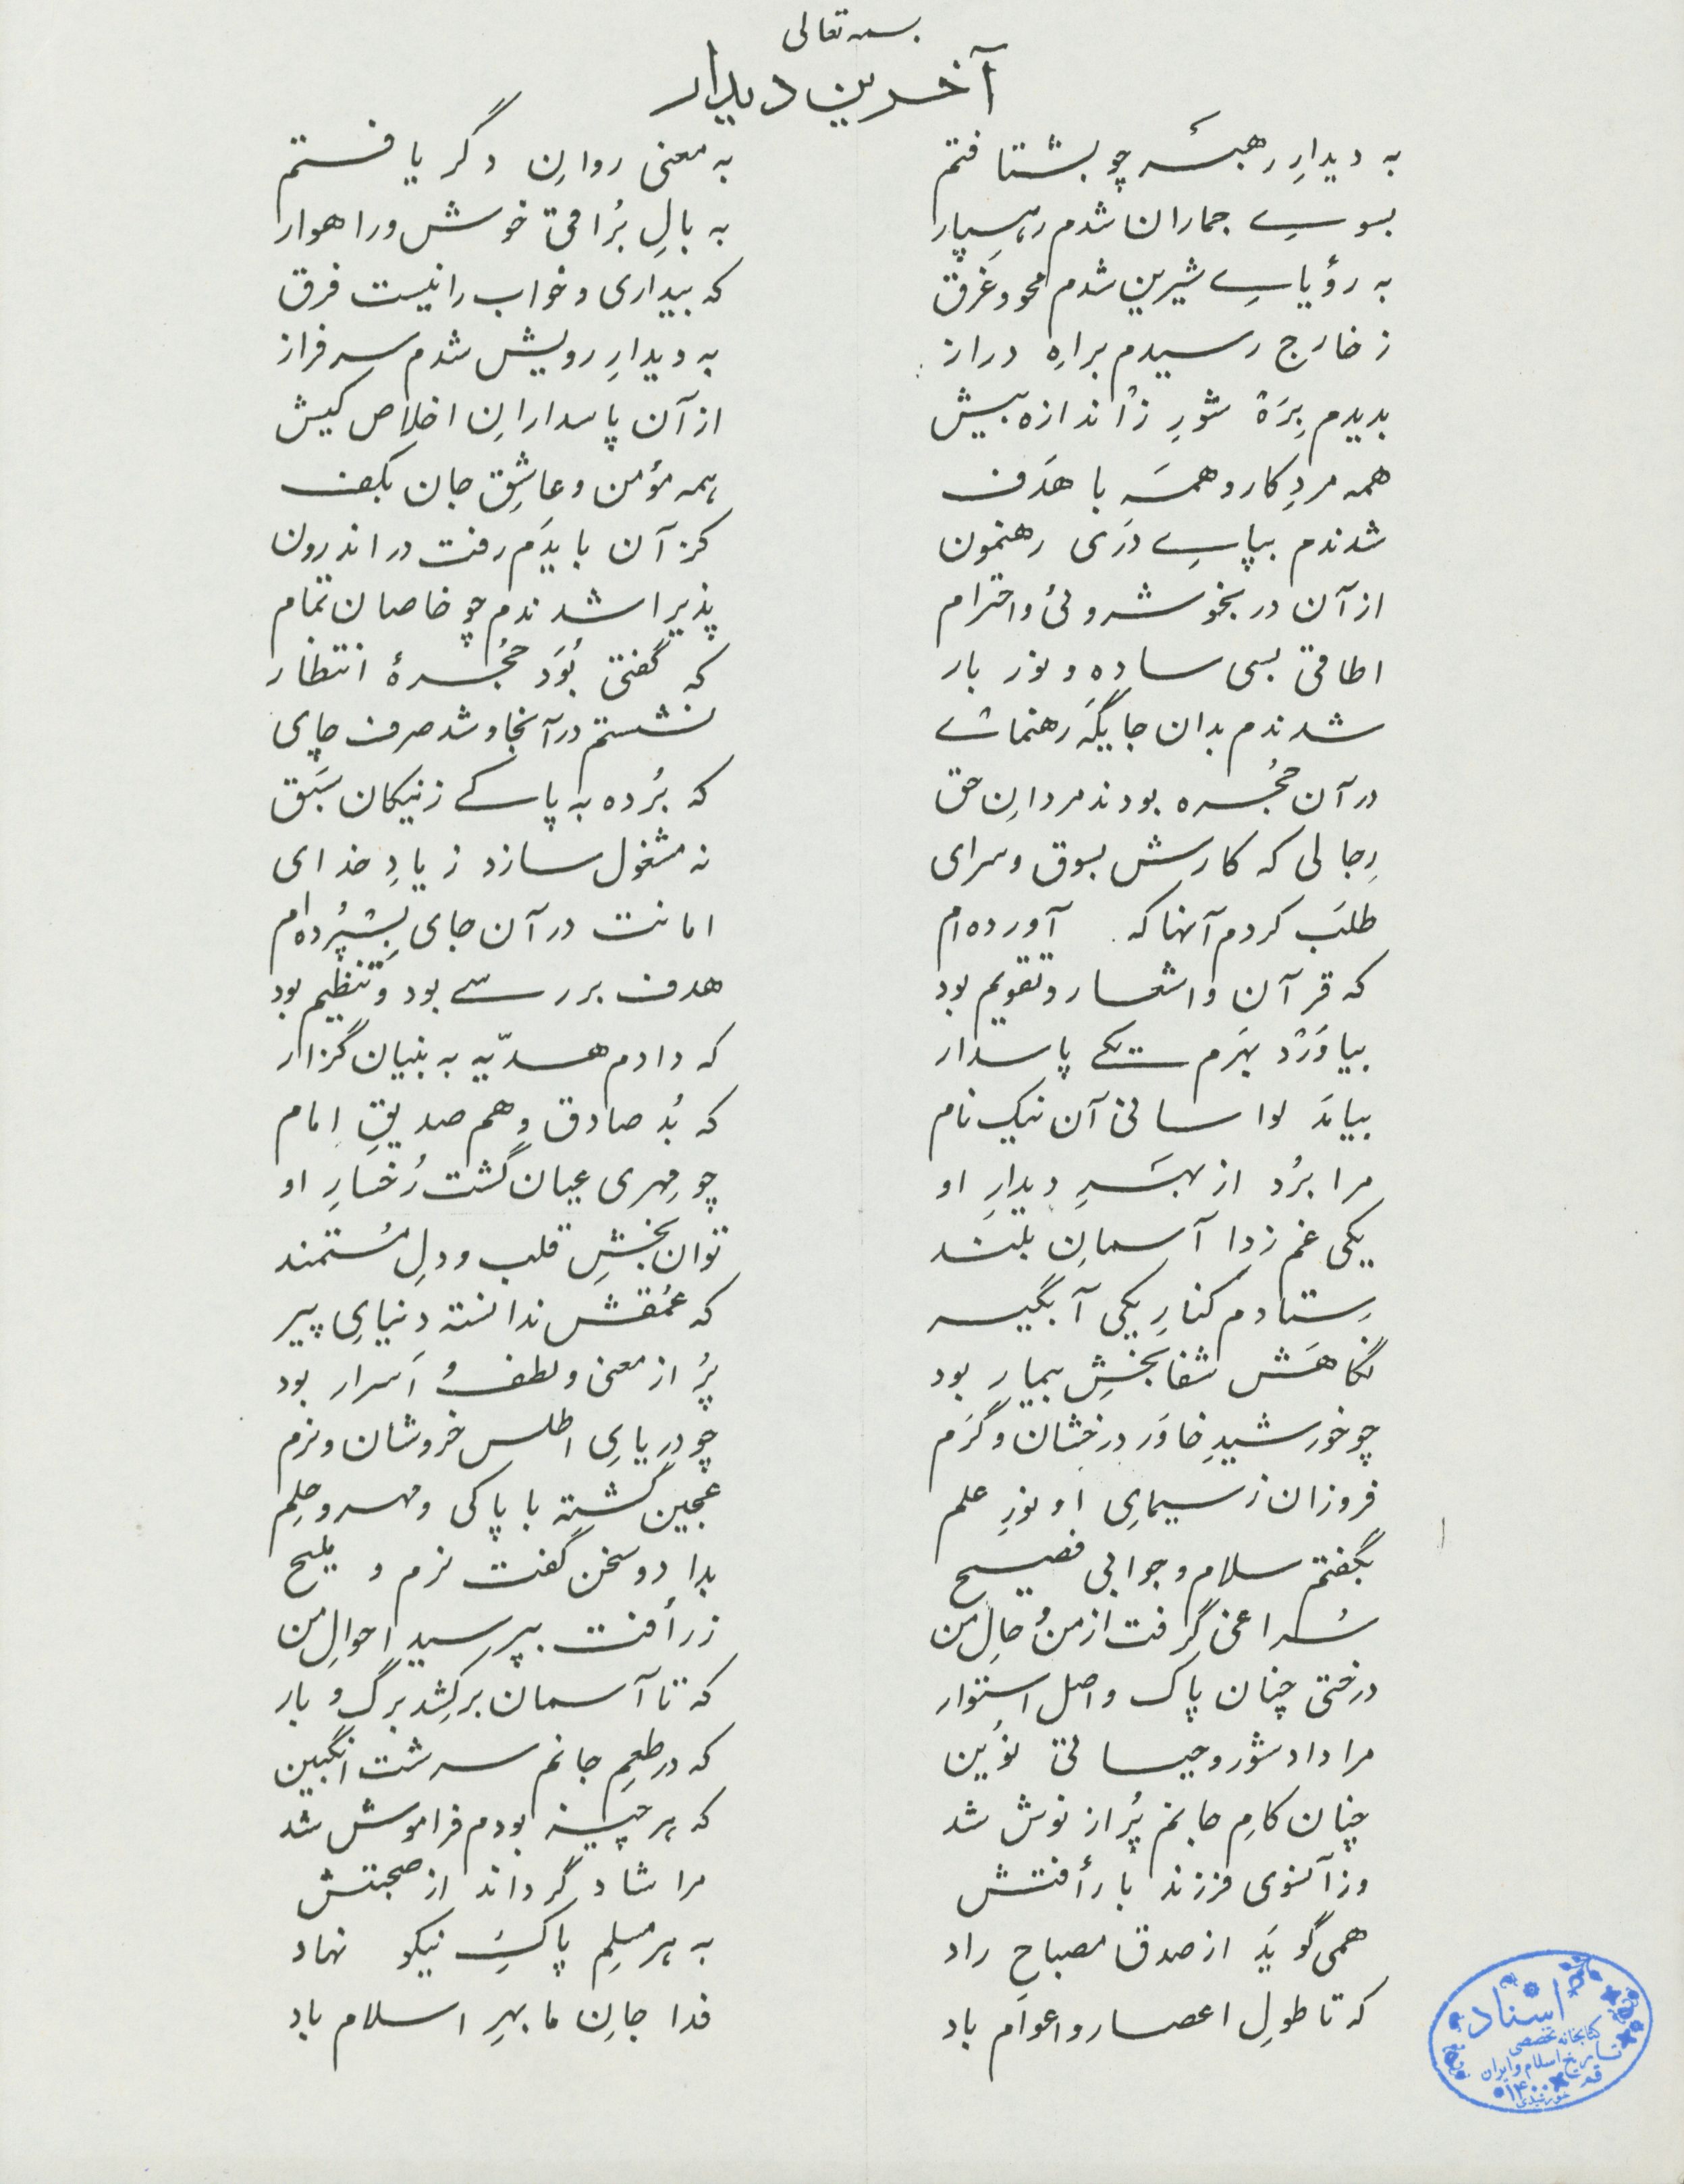 بسمه تعالی
آخرین دیدار
به دیدارِ رهبَر چو بشتافتم به معنی روانِ دگر یافتم
بسوی جماران شدم رهسپار به بالِ بُراقی خوش و راهوار
به رؤیای شیرین شدم محو و غرق که بیداری و خواب را نیست فرق
ز خارج رسیدم براهِ دراز به دیدارِ رویش شدم سرفراز
بدیدم بِرَهْ شورِ زْاندازه بیش از آن پاسدارانِ اخلاص کیش
همه مردِ کار و همَه با هدَف همه مؤمن و عاشِقِ جان بکف
شدندم بپای دَری رهنمون کز آن بایدَم رفت در اندرون
از آن در بخوشروئی و احترام پذیرا شدندم چو خاصان تمام
اطاقی بسی ساده و نور بار که گفتی بُوَد حُجُرهٔ انتظار
شدندم بدان جایگَه رهنمای نشستم در آنجا و شد صرف چای
در آن حُجُره بودند مردانِ حق که بُرده به پاکی ز نیکان سَبَق
رِجالی که کارش بسوق و سرای نه مشغول سازد ز یادِ خدای
طلَب کردم آنها که آورده‌ام امانت در آن جای بِسْپُرده‌ام
که قرآن و اشعار و تقویم بود هدف بررسی بود و تنظیم بود
بیاوَرْد بهَرم یکی پاسدار که دادم هدّیه به بنیان گزار
بیامَد لواسانی آن نیک نام که بُد صادق و هم صدیقِ امام
مرا بُرد از بهَرِ دیدارِ او چو مِهری عیان گشت رُخسارِ او
یکی غم زدا آسمانِ بلند توان بخشِ قلب و دلِ مُستمند
سِتادم کنارِ یکی آبگیر که عُمُقش ندانسته دنیایِ پیر
نگاهَش شفابخشِ بیمار بود پُر از معنی و لطف و اَسرار بود
چو خورشیدِ خاوَر درخشان و گرَم چو دریایِ اطلس خروشان و نرم
فروزان ز سیمایِ او نورِ علم عجین گشته با پاکی و مهر و حِلِم
بگفتم سلام و جوابی فصیح بداد و سخن گفت نرم و ملیح
سُراغی گرفت از من و حالِ من ز رأفت بپرسید احوالِ من
درختی چنان پاک و اصل استوار که تا آسمان برکِشد برگ و بار
مرا داد شور و حیاتی نوُین که در طعمِ جانم سرشت انگبین
چنان کامِ جانم پُر از نوش شد که هر چیز بودم فراموش شد
وز آنسوی فرزند با رأفتش مرا شاد گرداند از صحبتش
همی گویَد از صدق مصباحِ راد به هر مسلِمِ پاکِ نیکو نهاد
که تا طولِ اعصار و اعوام باد فدا جانِ ما بهرِ اسلام باد
اسناد
کتابخانه تخصصی
تاریخ اسلام و ایران
قم